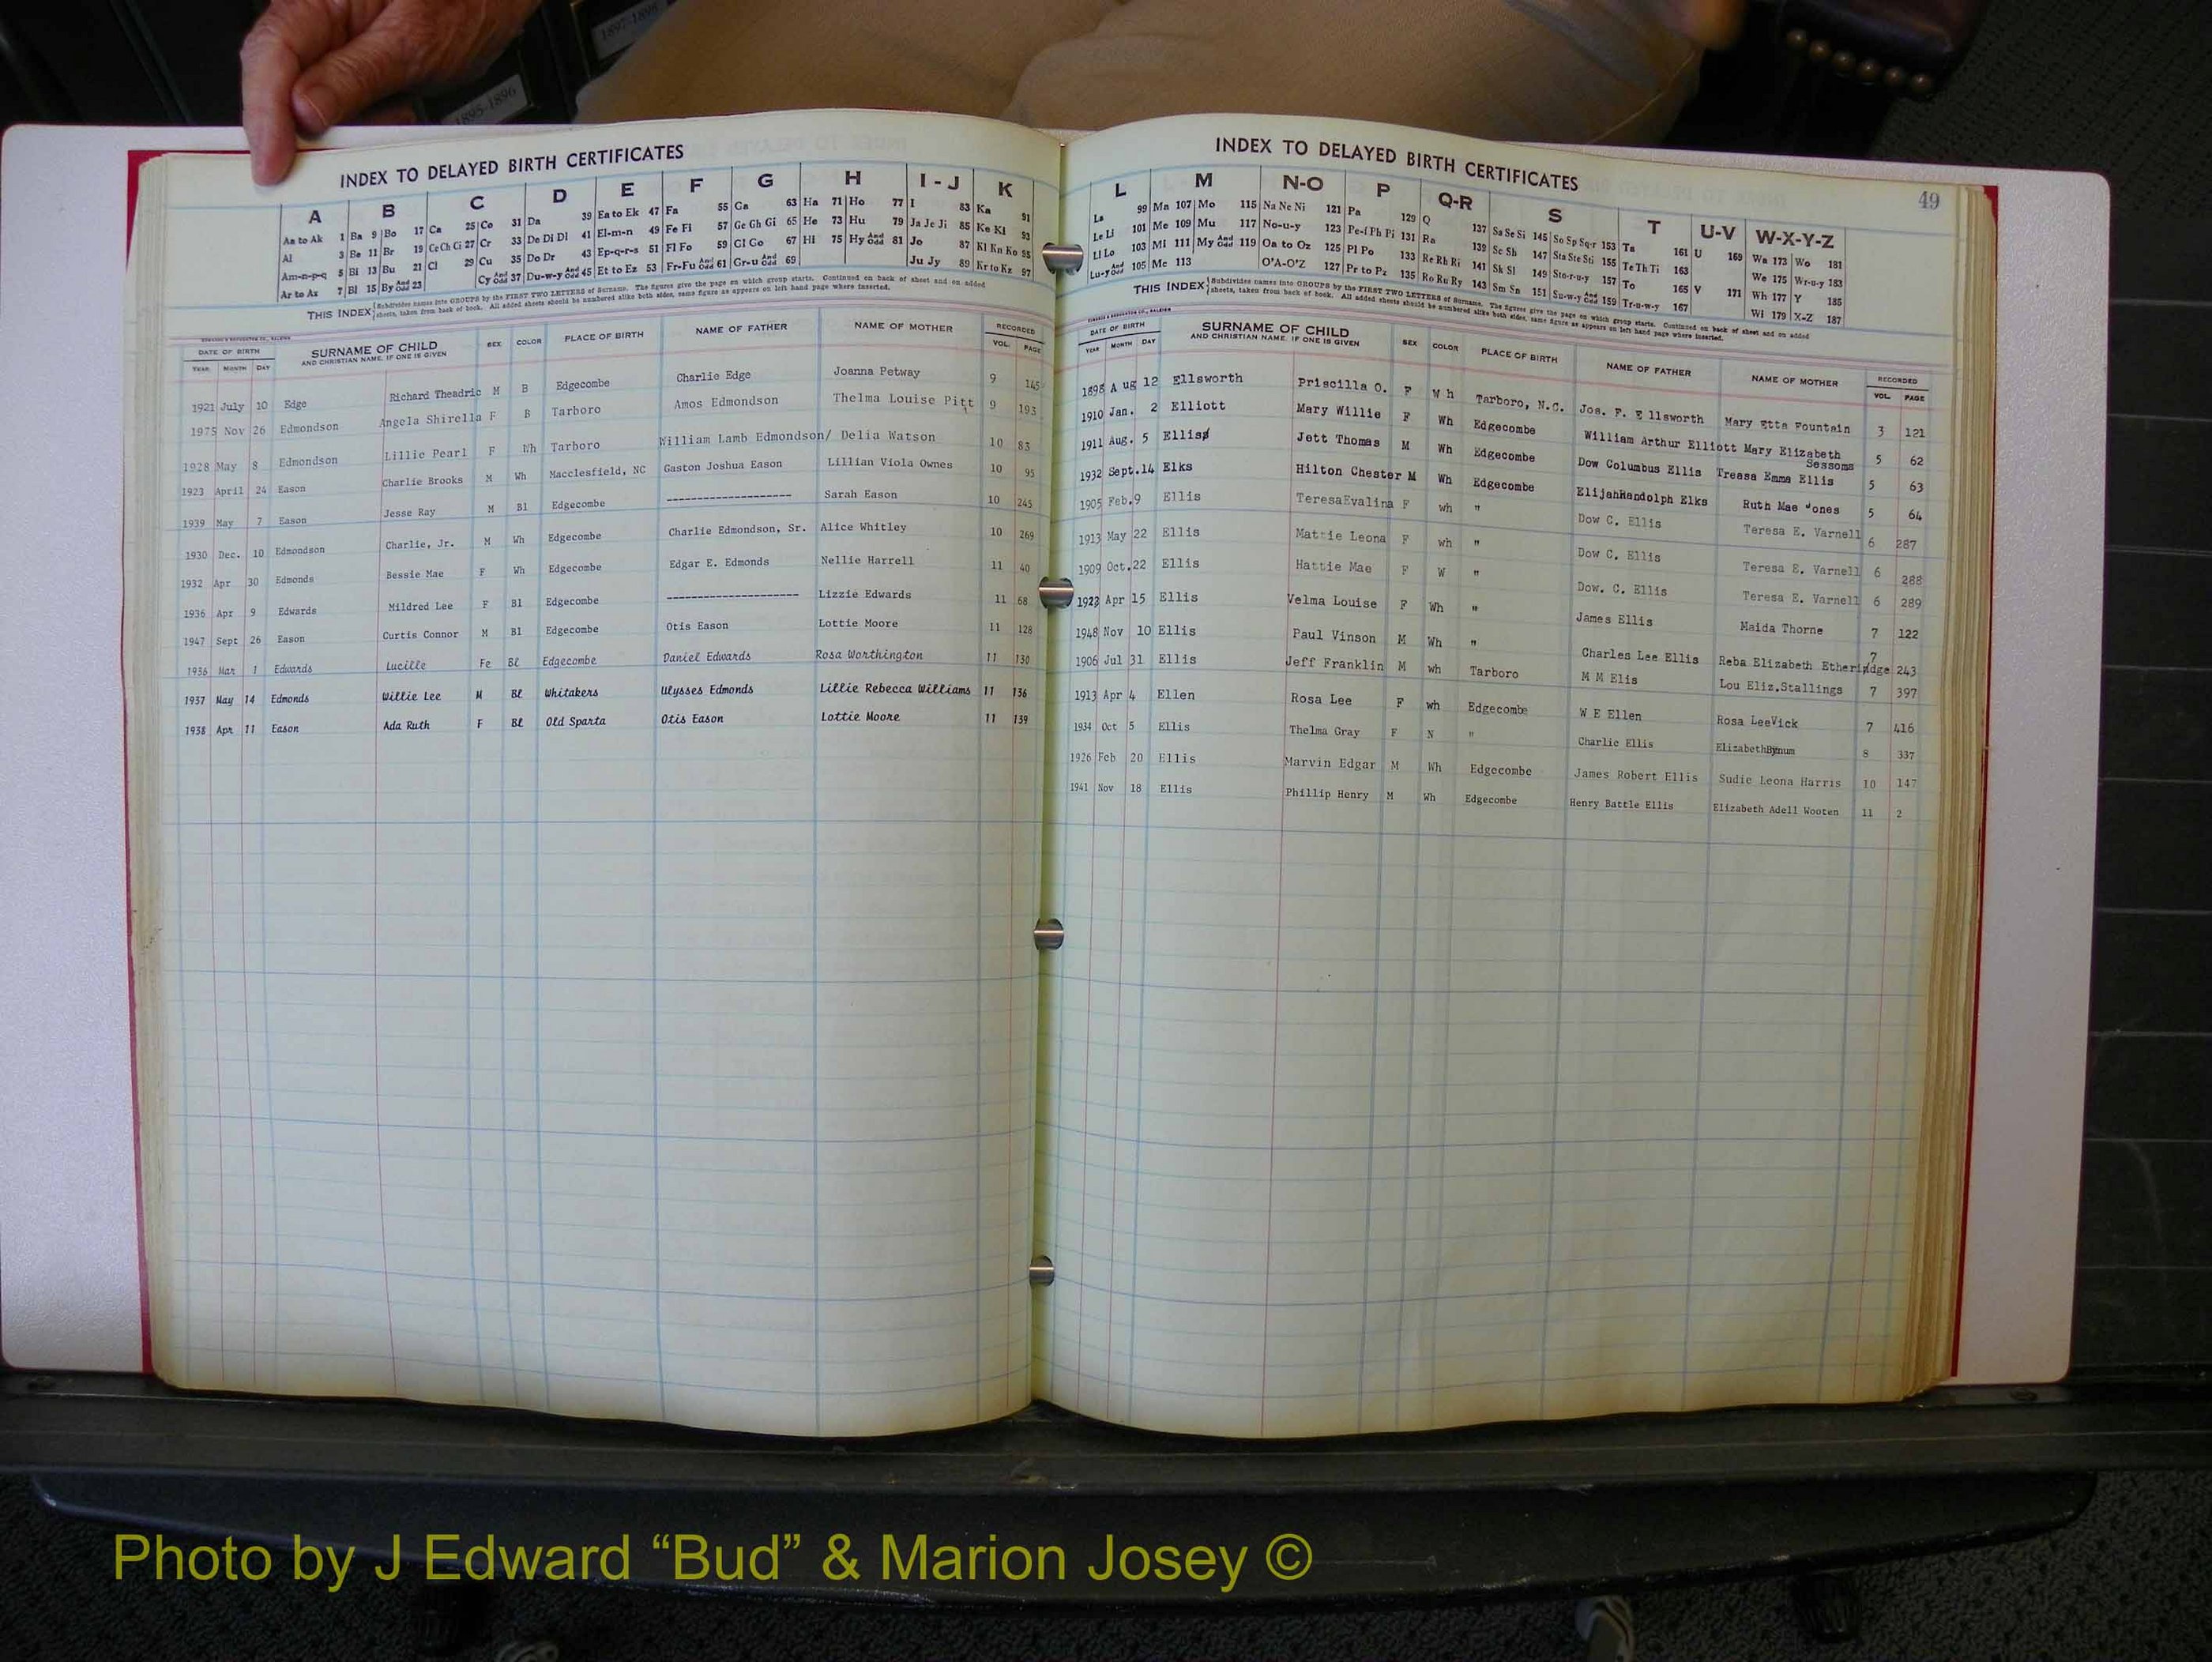 1897-1898
1895-1896
INDEX TO DELAYED BIRTH CERTIFICATES
A B C D E F G H I-J K
Aa to Ak 1 Ba 9 Bo 17 Ca 25 Co 31 Da 39 Ea to Ek 47 Fa 55 Ga 63 Ha 71 Ho 77 I 83 Ka 91
Al 3 Be 11 Br 19 Ce Ch Ci 27 Cr 33 De Di Dl 41 El-m-n 49 Fe Fi 57 Ge Gh Gi 65 He 73 Hu 79 Ja Je Ji 85 Ke Ki 93
Am-n-p-q 5 Bi 13 Bu 21 Cl 29 Cu 35 Do Dr 43 Ep-q-r-s 51 Fl Fo 59 Gl Go 67 Hi 75 Hy And Odd 81 Jo 87 Kl Kn Ko 95
Ar to Az 7 Bl 15 By And Odd 23 Cy And Odd 37 Du-w-y And Odd 45 Et to Ez 53 Fr-Fu And Odd 61 Gr-u And Odd 69 Ju Jy 89 Kr to Kz 97
THIS INDEX Subdivides names into GROUPS by the FIRST TWO LETTERS of Surname. The figures give the page on which group starts. Continued on back of sheet and on added
sheets, taken from back of book. All added sheets should be numbered alike both sides, same figure as appears on left hand page where inserted.
DATE OF BIRTH SURNAME OF CHILD SEX COLOR PLACE OF BIRTH NAME OF FATHER NAME OF MOTHER RECORDED
YEAR MONTH DAY AND CHRISTIAN NAME, IF ONE IS GIVEN VOL. PAGE
1921 July 10 Edge Richard Theadric M B Edgecombe Charlie Edge Joanna Petway 9 145
1975 Nov 26 Edmondson Angela Shirella F B Tarboro Amos Edmondson Thelma Louise Pitt 9 193
1928 May 8 Edmondson Lillie Pearl F Wh Tarboro William Lamb Edmondson/ Delia Watson 10 83
1923 April 24 Eason Charlie Brooks M Wh Macclesfield, NC Gaston Joshua Eason Lillian Viola Ownes 10 95
1939 May 7 Eason Jesse Ray M Bl Edgecombe -------------------- Sarah Eason 10 245
1930 Dec. 10 Edmondson Charlie, Jr. M Wh Edgecombe Charlie Edmondson, Sr. Alice Whitley 10 269
1932 Apr 30 Edmonds Bessie Mae F Wh Edgecombe Edgar E. Edmonds Nellie Harrell 11 40
1936 Apr 9 Edwards Mildred Lee F Bl Edgecombe --------------------- Lizzie Edwards 11 68
1947 Sept 26 Eason Curtis Connor M Bl Edgecombe Otis Eason Lottie Moore 11 128
1936 Mar 1 Edwards Lucille Fe Bl Edgecombe Daniel Edwards Rosa Worthington 11 130
1937 May 14 Edmonds Willie Lee M Bl Whitakers Ulysses Edmonds Lillie Rebecca Williams 11 136
1938 Apr 11 Eason Ada Ruth F Bl Old Sparta Otis Eason Lottie Moore 11 139
INDEX TO DELAYED BIRTH CERTIFICATES 49
L M N-O P Q-R S T U-V W-X-Y-Z
La 99 Ma 107 Mo 115 Na Ne Ni 121 Pa 129 Q 137 Sa Se Si 145 So Sp Sq-r 153 Ta 161 U 169 Wa 173 Wo 181
Le Li 101 Me 109 Mu 117 No-u-y 123 Pe-f Ph Pi 131 Ra 139 Sc Sh 147 Sta Ste Sti 155 Te Th Ti 163 We 175 Wr-u-y 183
Ll Lo 103 Mi 111 My And Odd 119 Oa to Oz 125 Pl Po 133 Re Rh Ri 141 Sk Sl 149 Sto-r-u-y 157 To 165 V 171 Wh 177 Y 185
Lu-y And Odd 105 Mc 113 O'A-O'Z 127 Pr to Pz 135 Ro Ru Ry 143 Sm Sn 151 Su-w-y And Odd 159 Tr-u-w-y 167 Wi 179 X-Z 187
THIS INDEX Subdivides names into GROUPS by the FIRST TWO LETTERS of Surname. The figures give the page on which group starts. Continued on back of sheet and on added
sheets, taken from back of book. All added sheets should be numbered alike both sides, same figure as appears on left hand page where inserted.
DATE OF BIRTH SURNAME OF CHILD SEX COLOR PLACE OF BIRTH NAME OF FATHER NAME OF MOTHER RECORDED
YEAR MONTH DAY AND CHRISTIAN NAME, IF ONE IS GIVEN VOL. PAGE
1898 A ug 12 Ellsworth Priscilla O. F W h Tarboro, N.C. Jos. F. E llsworth Mary Etta Fountain 3 121
1910 Jan. 2 Elliott Mary Willie F Wh Edgecombe William Arthur Elliott Mary Elizabeth Sessoms 5 62
1911 Aug. 5 Ellis Jett Thomas M Wh Edgecombe Dow Columbus Ellis Treasa Emma Ellis 5 63
1932 Sept.14 Elks Hilton Chester M Wh Edgecombe ElijahRandolph Elks Ruth Mae Jones 5 64
1905 Feb.9 Ellis TeresaEvalina F wh " Dow C. Ellis Teresa E. Varnell 6 287
1913 May 22 Ellis Mattie Leona F wh " Dow C. Ellis Teresa E. Varnell 6 288
1909 Oct.22 Ellis Hattie Mae F W " Dow. C. Ellis Teresa E. Varnell 6 289
1922 Apr 15 Ellis Velma Louise F Wh " James Ellis Maida Thorne 7 122
1948 Nov 10 Ellis Paul Vinson M Wh " Charles Lee Ellis Reba Elizabeth Etheridge 7 243
1906 Jul 31 Ellis Jeff Franklin M wh Tarboro M M Elis Lou Eliz.Stallings 7 397
1913 Apr 4 Ellen Rosa Lee F wh Edgecombe W E Ellen Rosa LeeVick 7 416
1934 Oct 5 Ellis Thelma Gray F N " Charlie Ellis ElizabethBynum 8 337
1926 Feb 20 Ellis Marvin Edgar M Wh Edgecombe James Robert Ellis Sudie Leona Harris 10 147
1941 Nov 18 Ellis Phillip Henry M Wh Edgecombe Henry Battle Ellis Elizabeth Adell Wooten 11 2
Photo by J Edward “Bud” & Marion Josey ©